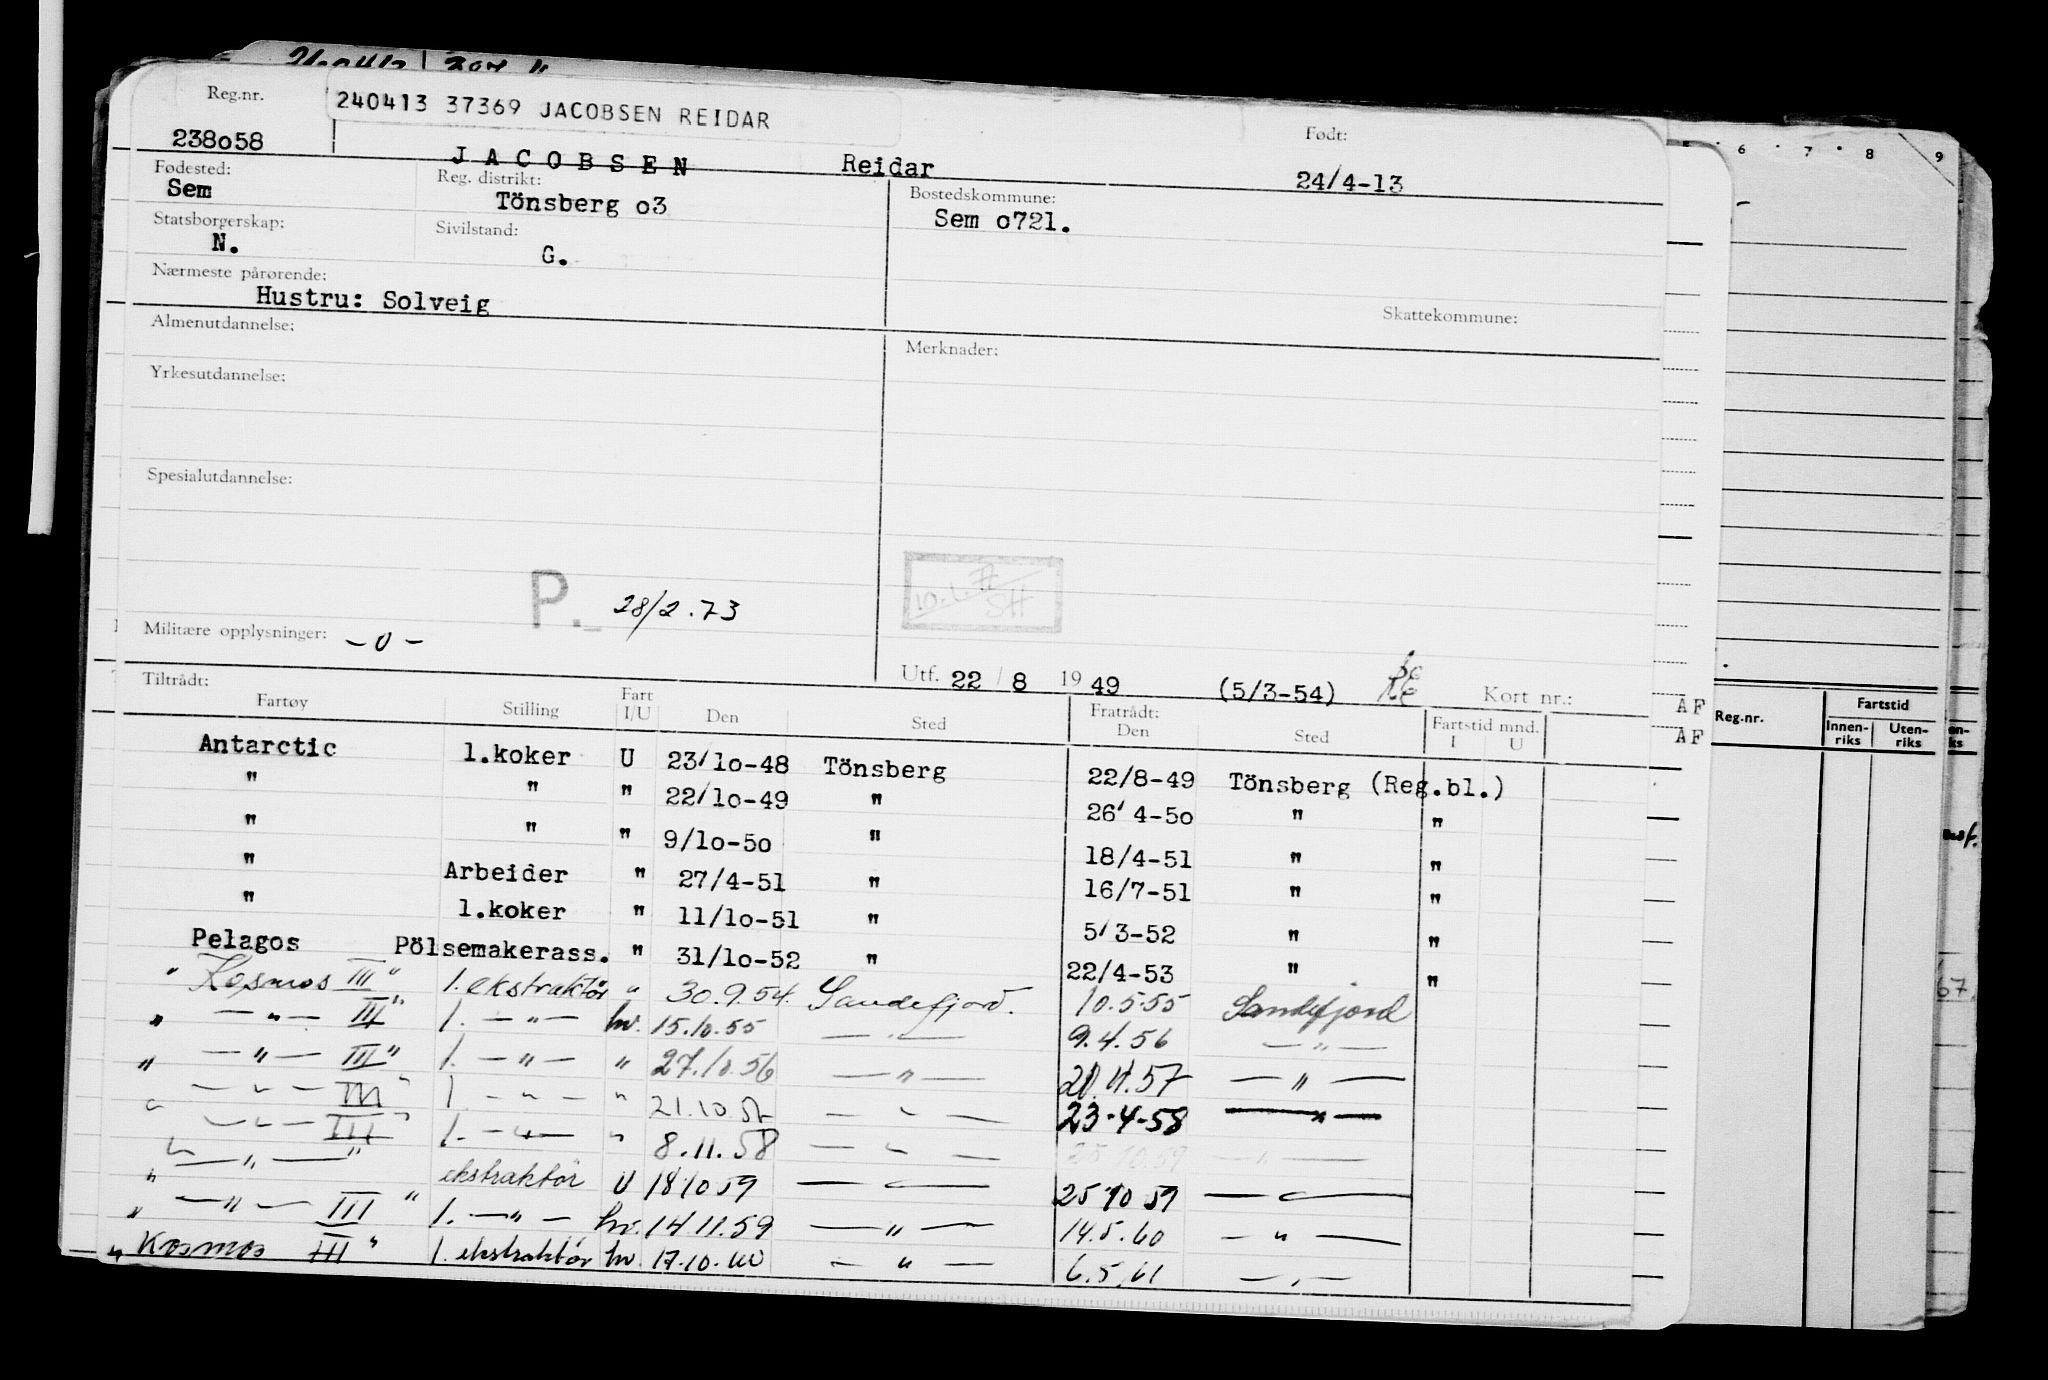 Reg.nr. 240413 37369 JACOBSEN REIDAR Født:
238o58 JACOBSEN Reidar 24/4-13
Fødested: Reg. distrikt: Bostedskommune:
Sem Tönsberg o3 Sem o721.
Statsborgerskap: Sivilstand:
N. G.
Nærmeste pårørende:
Hustru: Solveig
Skattekommune:
Almenutdannelse: Merknader:
Yrkesutdannelse:
Spesialutdannelse:
P. 28/2.73
Militære opplysninger: -0-
Utf. 22 / 8 19 49 (5/3-54) Kort nr.:
Tiltrådt: Fratrådt:
Fartøy Stilling Fart I/U Den Sted Den Sted Fartstid mnd. I U
Antarctic 1.koker U 23/10-48 Tönsberg 22/8-49 Tönsberg (Reg.bl.)
" " " 22/10-49 " 26/4-50 " "
" " " 9/10-50 " 18/4-51 " "
" Arbeider " 27/4-51 " 16/7-51 " "
" 1.koker " 11/10-51 " 5/3-52 " "
Pelagos Pölsemakerass. " 31/10-52 " 22/4-53 " "
"Kosmos III" 1. ekstraktör " 30.9.54. Sandefjord. 10.5.55 Sandefjord
" -"- III" 1. -"- hv. 15.10.55 -"- 9.4.56 -"-
" -"- III" 1. -"- " 27.10.56 -"- -"-
" -"- III" 1. -"- " 21.10.57 -"- 23-4-58 -"-
" -"- III" 1. -"- " 8.11.58 -"- 25.10.59 -"-
" -"- " ekstraktör U 18 10 59 -"- 25 10 59 -"-
" -"- III " 1. -"- hv. 14.11.59 -"- 14.5.60 -"-
" Kosmos III " 1. ekstraktör hv 17.10.60 -"- 6.5.61 -"-
6 7 8 9
AF
AF
Reg.nr. Fartstid
Innen-riks Uten-riks
67.